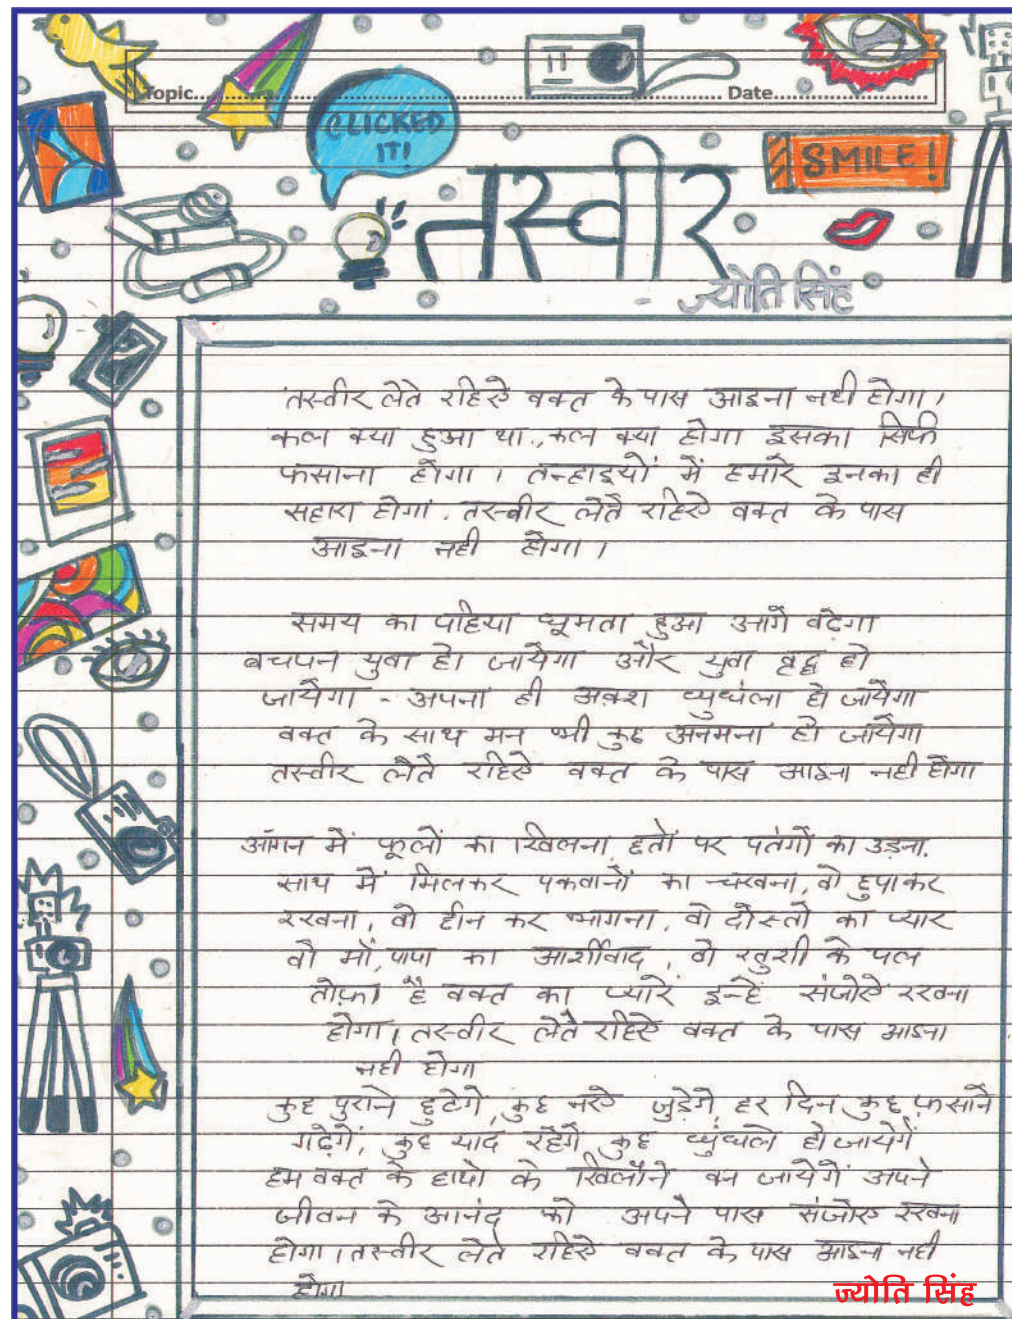 Topic Date
CLICKED
IT!
SMILE!
तस्वीर
- ज्योति सिंह
तस्वीर लेते रहिए वक्त के पास आइना नही होगा,
कल क्या हुआ था, कल क्या होगा इसका सिर्फ
फसाना होगा । तन्हाइयों में हमारे इनका ही
सहारा होगां. तस्वीर लेते रहिए वक्त के पास
आइना नही होगा ।
समय का पहिया घूमता हुआ आगे बढेगा
बचपन युवा हो जायेगा और युवा वृद्ध हो
जायेगा - अपना ही अक़्श धुधंला हो जायेगा
वक्त के साथ मन भी कुछ अनमना हो जायेगा
तस्वीर लेते रहिऐ वक्त के पास आइना नही होगा
आंगन में फूलों का खिलना, छतों पर पतंगों का उड़ना,
साथ में मिलकर पकवानों का चखना, वो छुपाकर
रखना, वो छीन कर भागना, वो दोस्तो का प्यार
वो माँ, पापा का आर्शीवाद, वो खुशी के पल
तोफ़ा है वक्त का प्यारें इन्हें संजोऐ रखना
होगा, तस्वीर लेते रहिऐ वक्त के पास आइना
नही होगा
कुछ पुराने छुटेगें, कुछ नऐ जुड़ेगें, हर दिन कुछ फ़साने
गढ़ेगें, कुछ याद रहेगें कुछ धुंधले हो जायेगें
हम वक्त के हाथो के खिलौने बन जायेगें अपने
जीवन के आनंद को अपने पास संजोए रखना
होगा । तस्वीर लेते रहिऐ वक्त के पास आइना नही
होगा
ज्योति सिंह